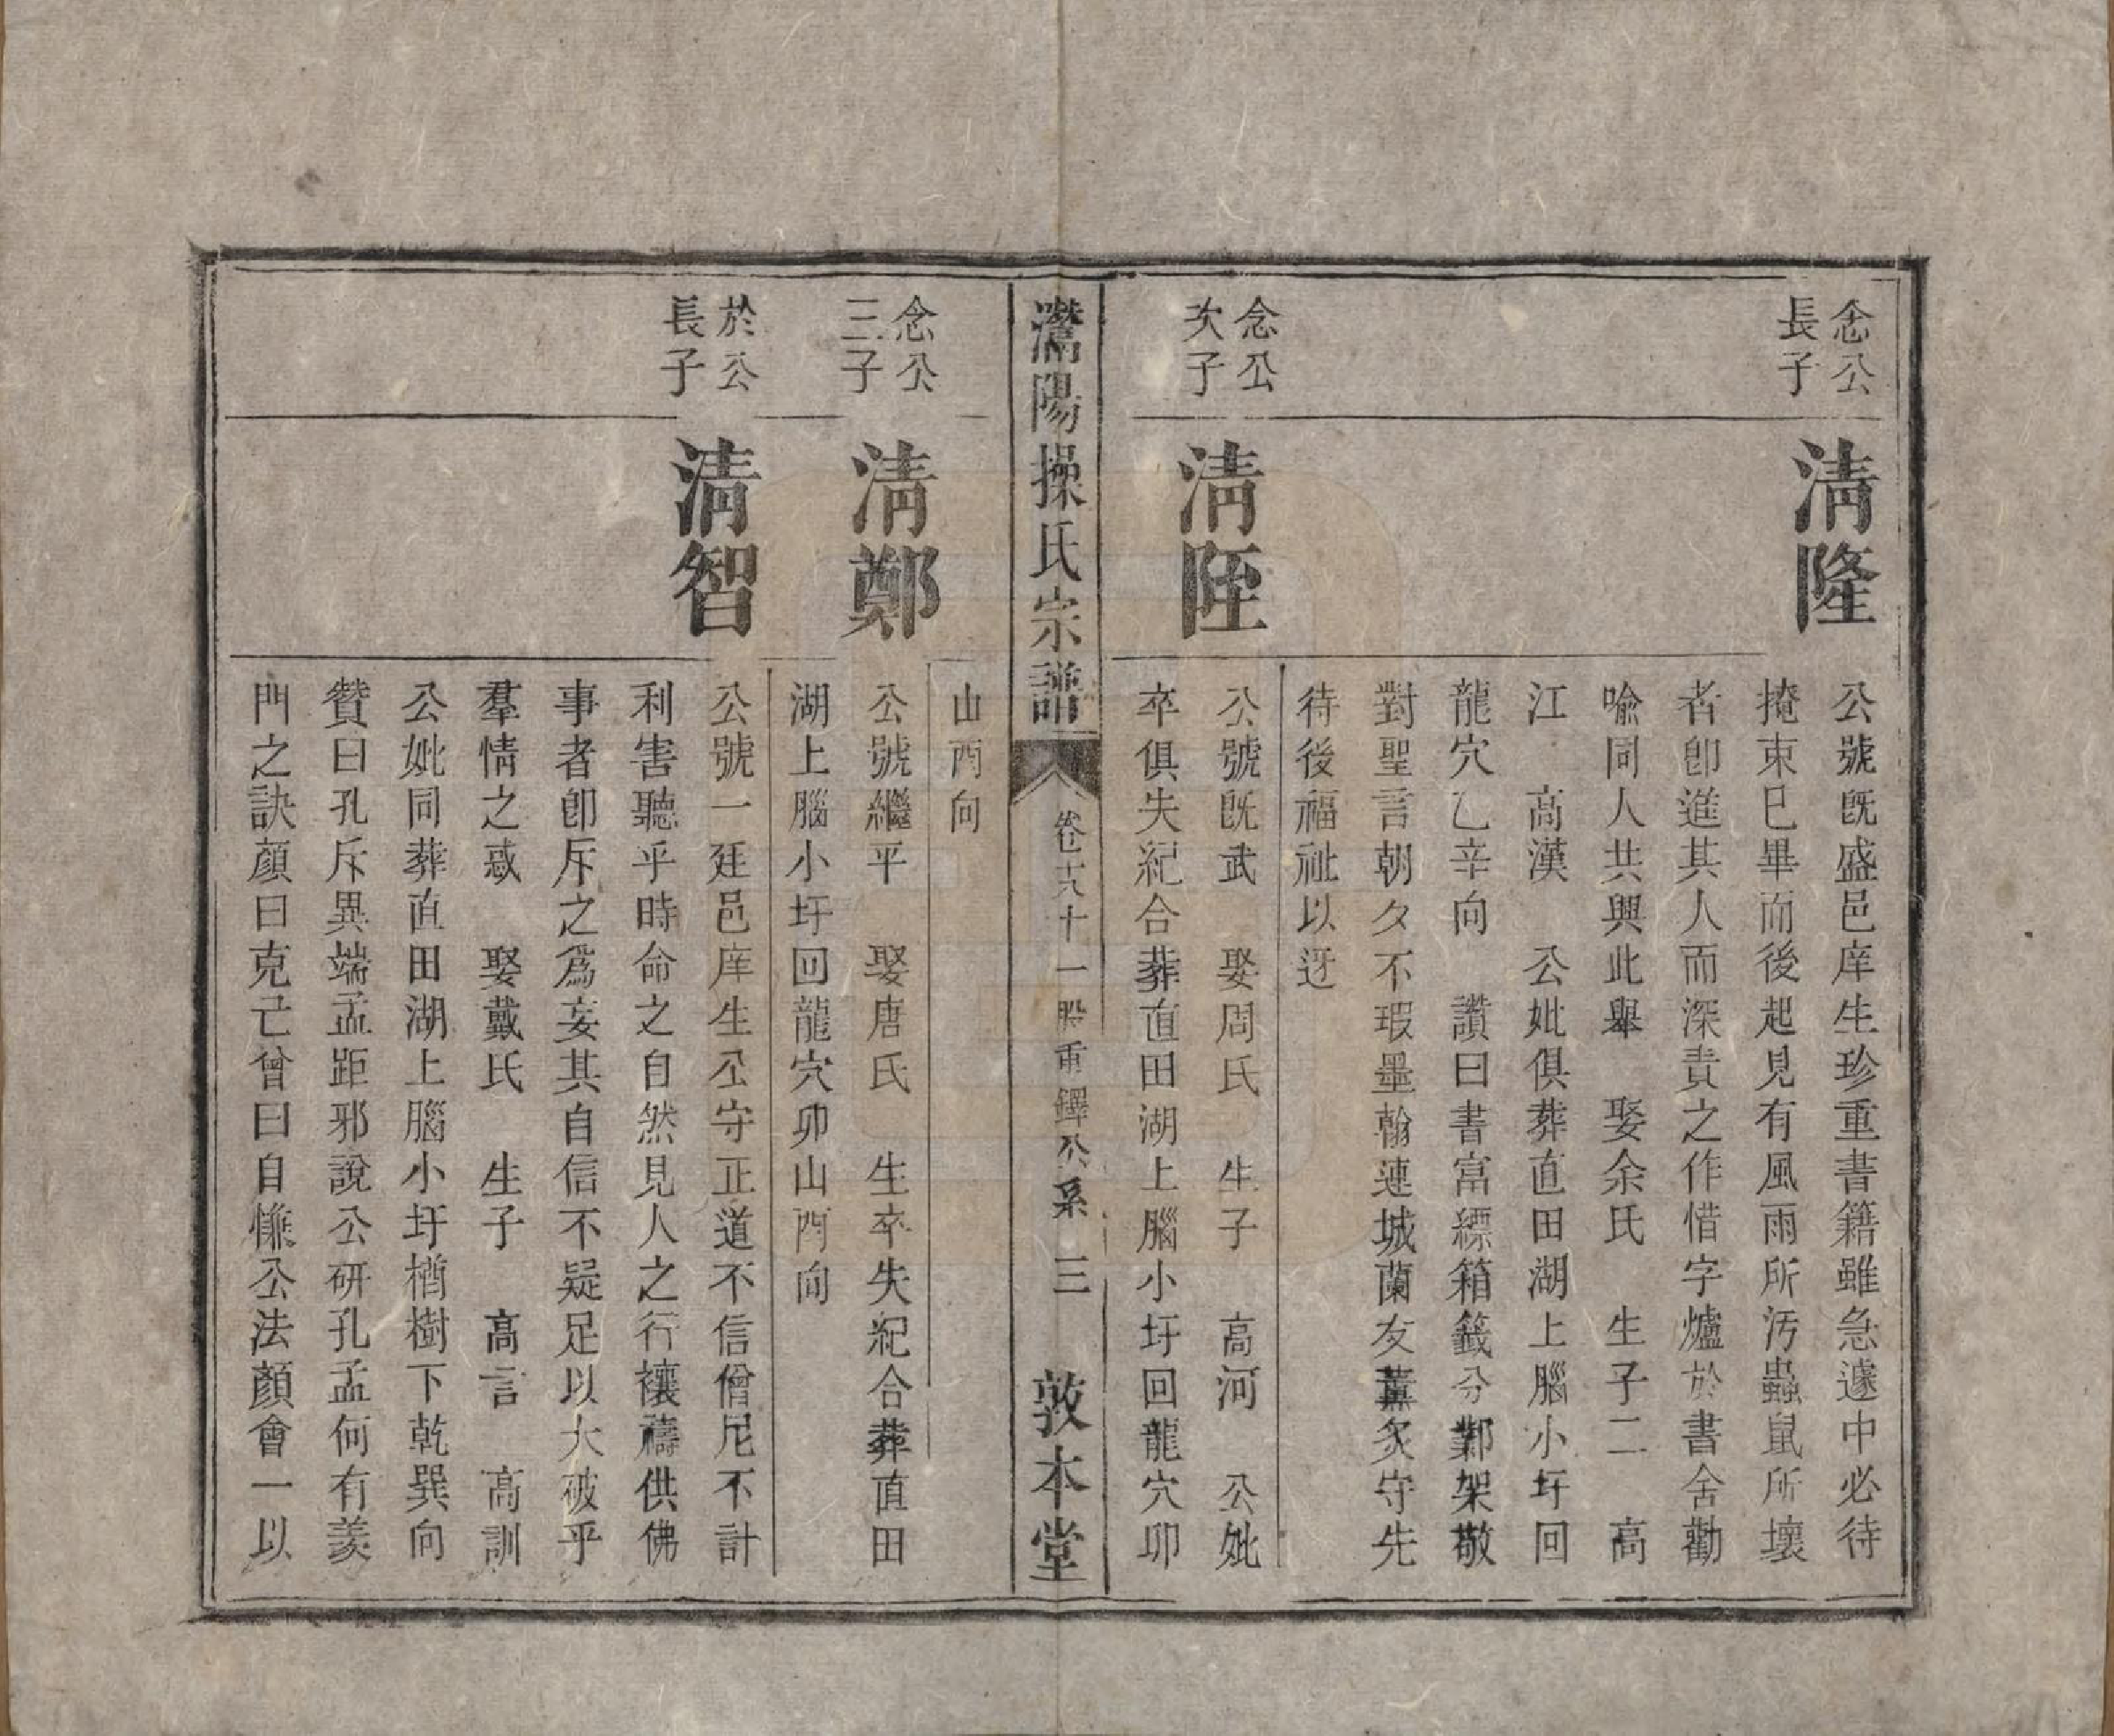 念公
長子
清隆
公號旣盛邑庠生珍重書籍雖急遽中必待
掩束巳畢而後起見有風雨所汚蟲鼠所壞
者卽進其人而深責之作惜字爐於書舍勸
喩同人共興此舉　娶余氏　生子二　高
江　高漢　公妣俱葬直田湖上腦小圩回
龍穴乙辛向　讚曰書富縹箱籤分鄴架敬
對聖言朝夕不瑕墨翰連城蘭友薰炙守先
待後福祉以迓
念公
次子
清陞
公號旣武　娶周氏　生子　高河　公妣
卒俱失紀合葬直田湖上腦小圩回龍穴卯
灊陽操氏宗譜
卷十六十一股重鐸公系　三
敦本堂
山酉向
念公
三子
清鄭
公號繼平　娶唐氏　生卒失紀合葬直田
湖上腦小圩回龍穴卯山酉向
於公
長子
清智
公號一廷邑庠生公守正道不信僧尼不計
利害聽乎時命之自然見人之行禳禱供佛
事者卽斥之爲妄其自信不疑足以大破乎
羣情之惑　娶戴氏　生子　高言　高訓
公妣同葬直田湖上腦小圩楢樹下乾巽向
贊曰孔斥異端孟距邪說公硏孔孟何有羨
門之訣顏曰克己曾曰自慊公法顏會一以